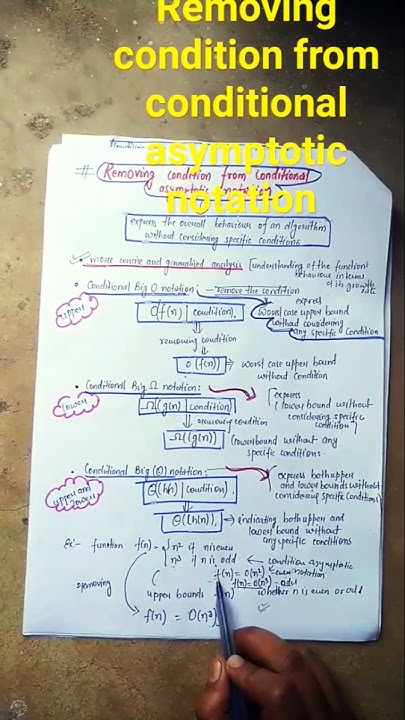 Removing
condition from
conditional
asymptotic
notation
# Removing condition from Conditional
asymptotic notation
express the overall behaviour of an algorithm
without considering specific conditions
more concise and generalised analysis (understanding of the function's
behaviour in terms
of its growth
rate
• Conditional Big O notation: - remove the condition
upper
O(f(n) | condition)
express
worst case upper bound
without considering
any specific condition
removing condition
O(f(n)) → worst case upper bound
without Condition
• Conditional Big Ω notation:
lower
Ω(g(n) | condition)
express
lower bound without
considering specific
condition
removing condition
Ω(g(n)) (lower bound without any
specific conditions.
• Conditional Big (Θ) notation:
upper and
lower
Θ(h(n) | condition),
express both upper
and lower bounds without
considering specific Conditions
Θ(h(n)), → indicating both upper and
lower bound without
any specific conditions
Ex:- function f(n) = n² if n is even
n³ if n is odd ← condition asymptotic
notation
f(n) = O(n²) ← even
f(n) = O(n³) - odd
removing
upper bounds whether n is even or odd
f(n) = O(n³)